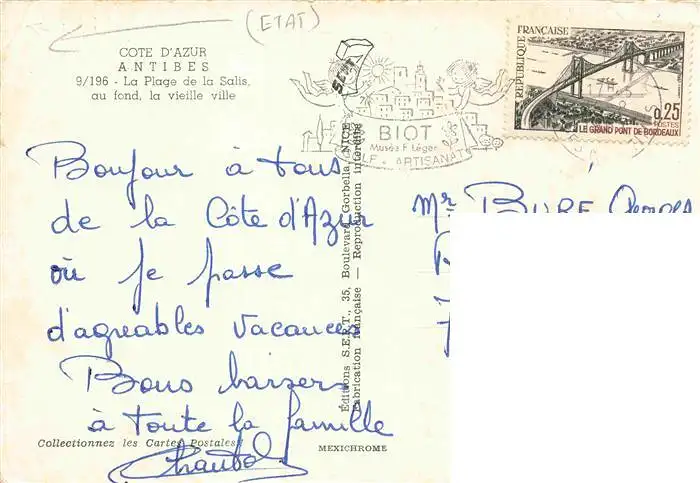 (ETAT)
COTE D'AZUR
ANTIBES
9/196 - La Plage de la Salis,
au fond, la vieille ville
BIOT
Musée F. Léger
ARTISANAT
REPUBLIQUE FRANÇAISE
0,25
POSTES
LE GRAND PONT DE BORDEAUX
Bonjour à tous
de la Côte d'Azur
où je passe
d'agréables vacances
Bons baisers
à toute la famille
Editions S.E.R.T., 35, Boulevard Gorbella, NICE
Fabrication française — Reproduction interdite
Mr BURE Georges
Collectionnez les Cartes Postales
MEXICHROME